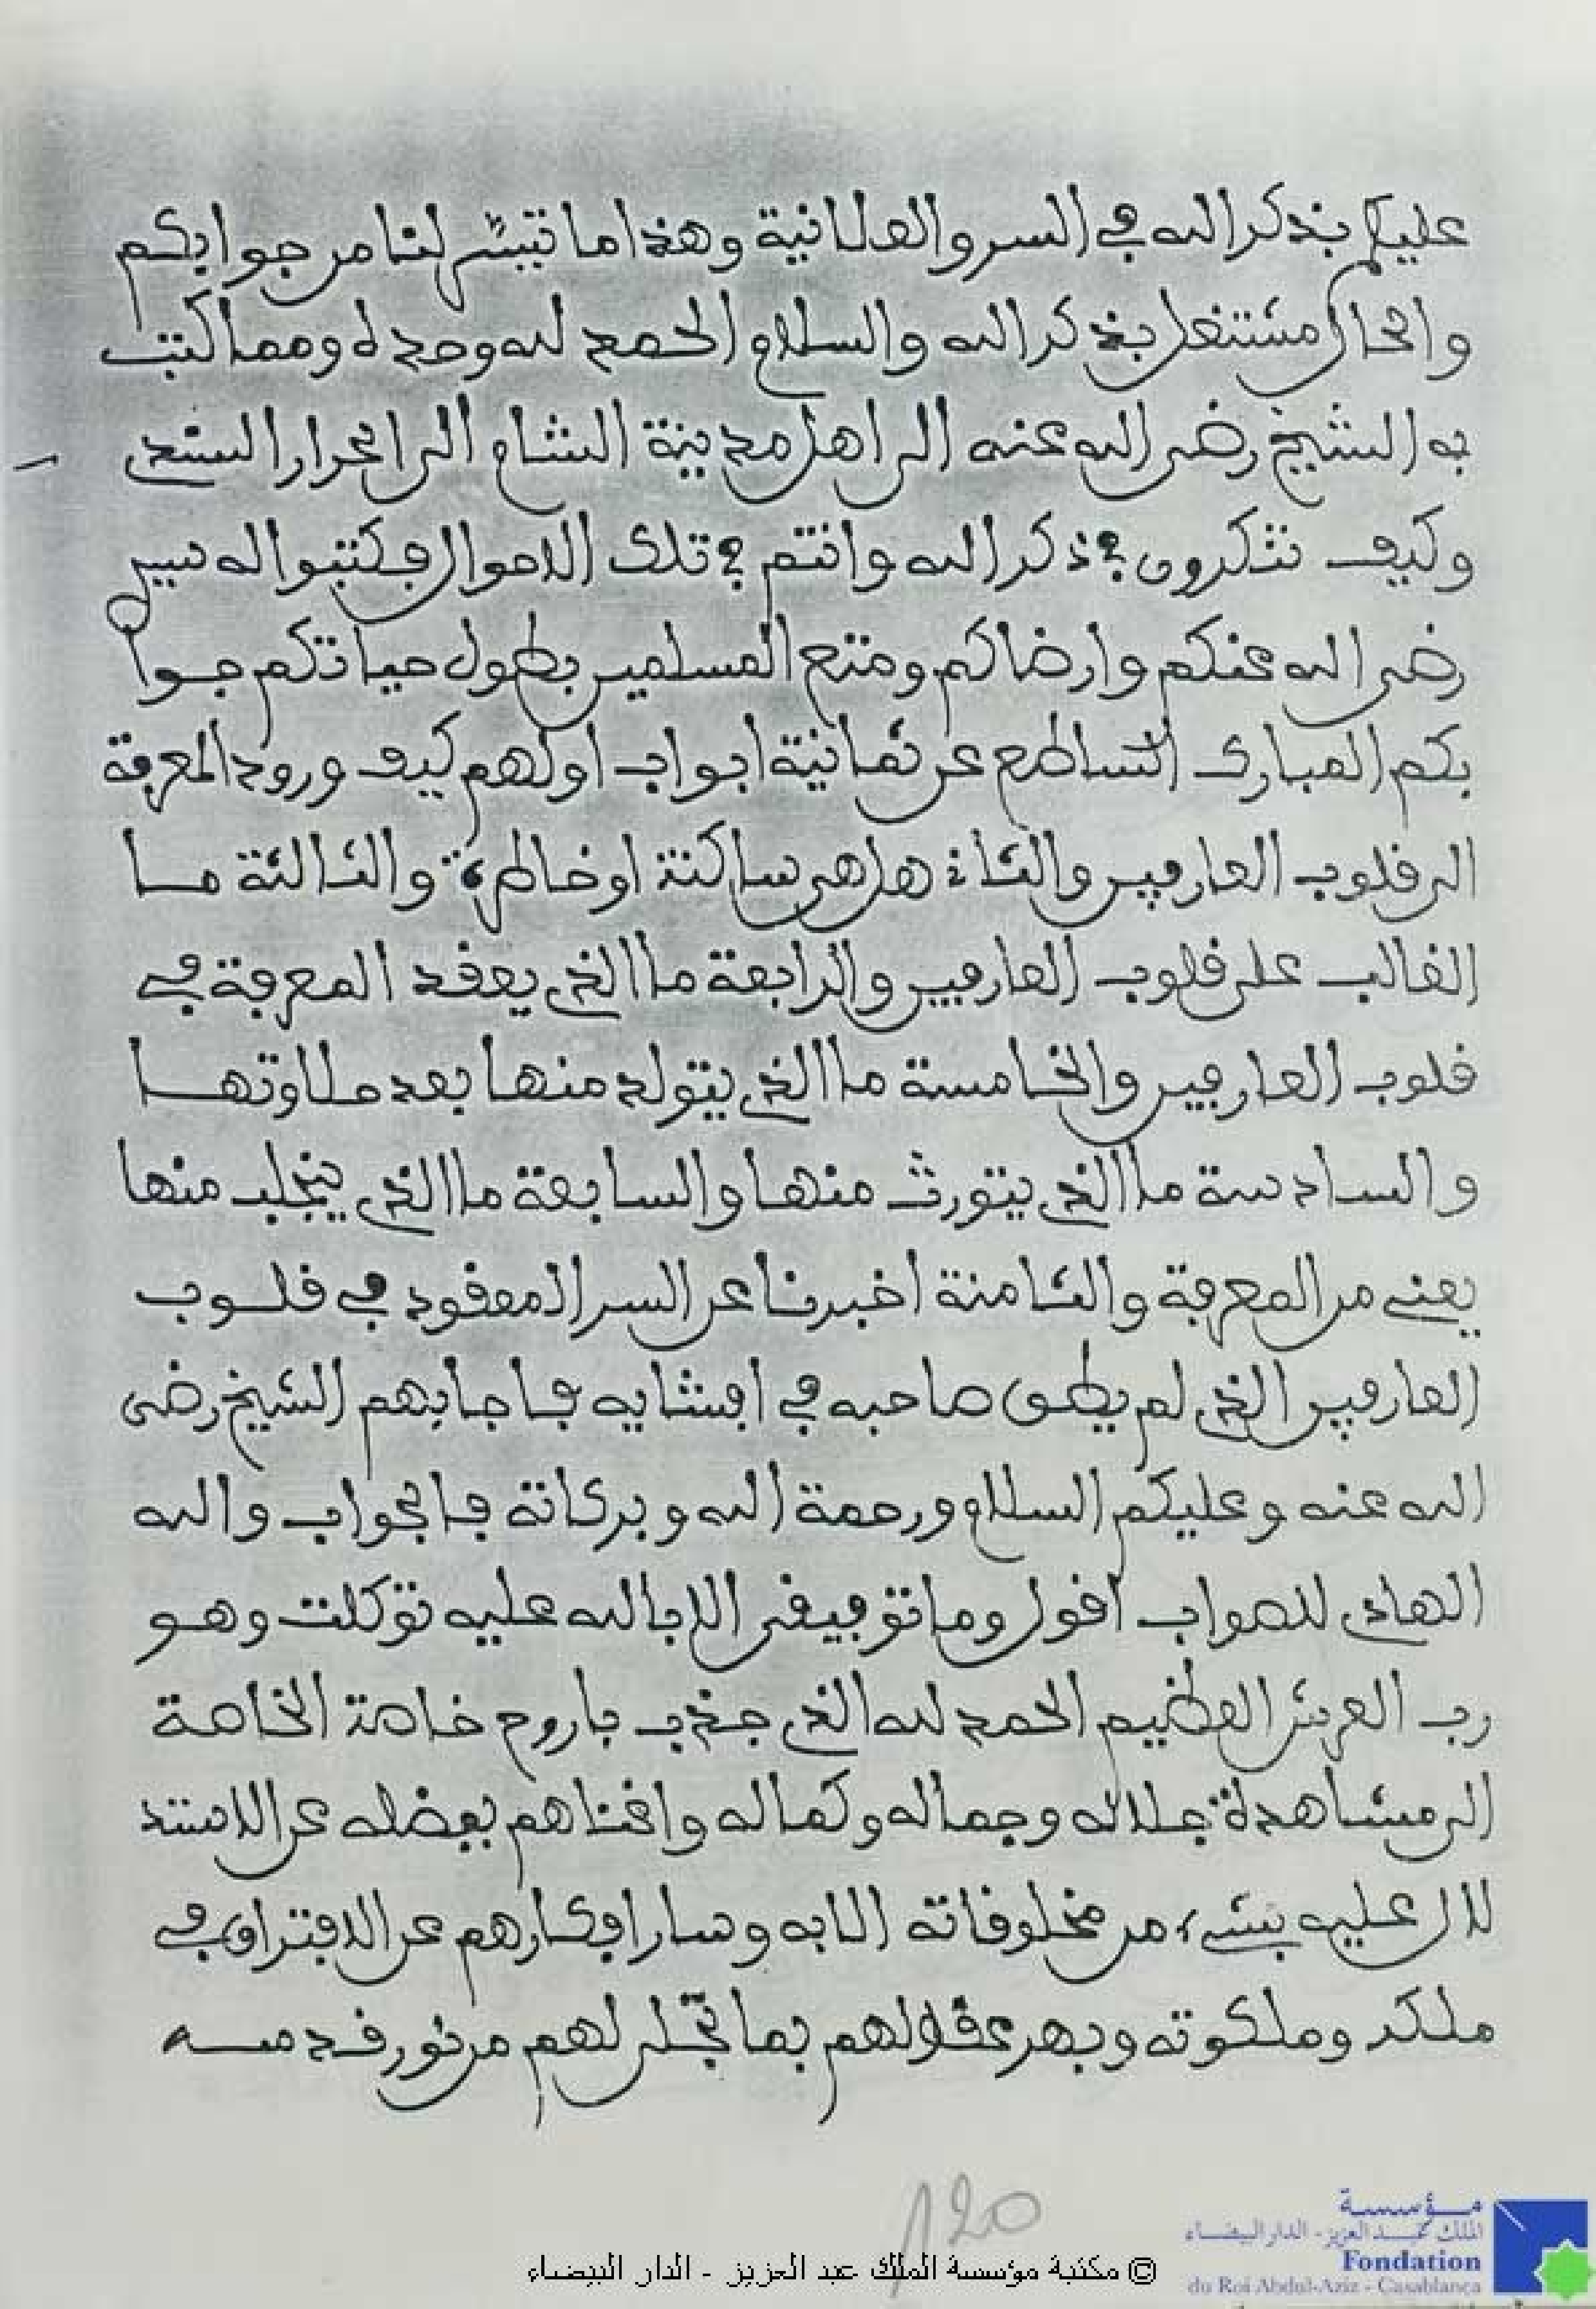 عليكم بذكر الله في السر والعلانية وهذا ما تيسر لنا من جوابكم
والحال مشتغل بذكر الله والسلام الحمد لله وحده ومما كتب
به الشيخ رضي الله عنه الى اهل مدينة الشام الى الحرار السند
وكيف تذكرون في ذكر الله وانتم في تلك الاحوال فكتبوا له سيدي
رضي الله عنكم وارضاكم ومتع المسلمين بطول حياتكم جوا
بكم المبارك الساطع عن ثمانية ابواب اولهم كيف ورود المعرفة
الى قلوب العارفين والثاني هل هي ساكنة او خاطرة والثالثة ما
الغالب على قلوب العارفين والرابعة ما الذي يعقد المعرفة في
قلوب العارفين والخامسة ما الذي يتولد منها بعد حلاوتها
والسادسة ما الذي يتورث منها والسابعة ما الذي ينجلب منها
يعني من المعرفة والثامنة اخبرنا عن السر المعقود في قلوب
العارفين الذي لم يطق صاحبه في افشايه فاجابهم الشيخ رضى
الله عنه وعليكم السلام ورحمة الله وبركاته فالجواب والله
الهادي للصواب اقول وما توفيقي الا بالله عليه توكلت وهو
رب العرش العظيم الحمد لله الذي جذب باروح خاصة الخاصة
الى مشاهدة جلاله وجماله وكماله وافناهم بفضله عن الاستد
لال عليه بشيء من مخلوقاته الا به وسار افكارهم عن الافتراق في
ملكه وملكوته وبهر عقولهم بما تجلى لهم من نور قدسه
120
© مكتبة مؤسسة الملك عبد العزيز - الدار البيضاء
مؤسسة
الملك عبد العزيز - الدار البيضاء
Fondation
du Roi Abdul-Aziz - Casablanca